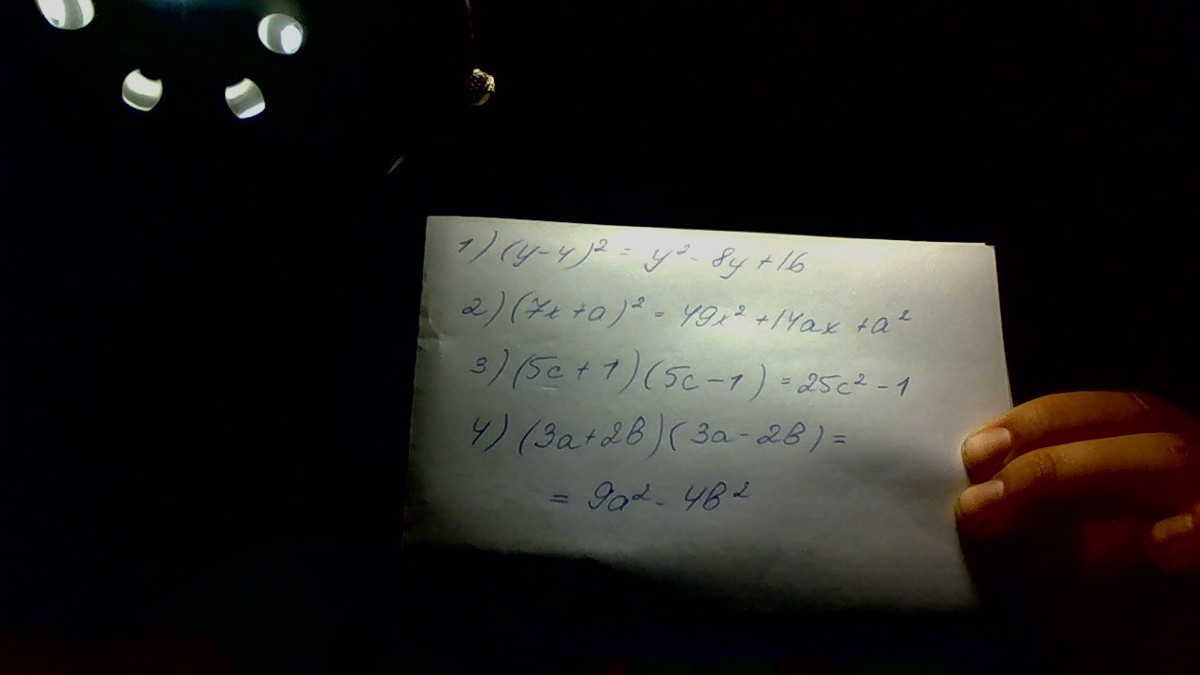 1) (y-4)² = y² - 8y + 16
2) (7x + a)² = 49x² + 14ax + a²
3) (5c + 1)(5c - 1) = 25c² - 1
4) (3a + 2b)(3a - 2b) =
= 9a² - 4b²